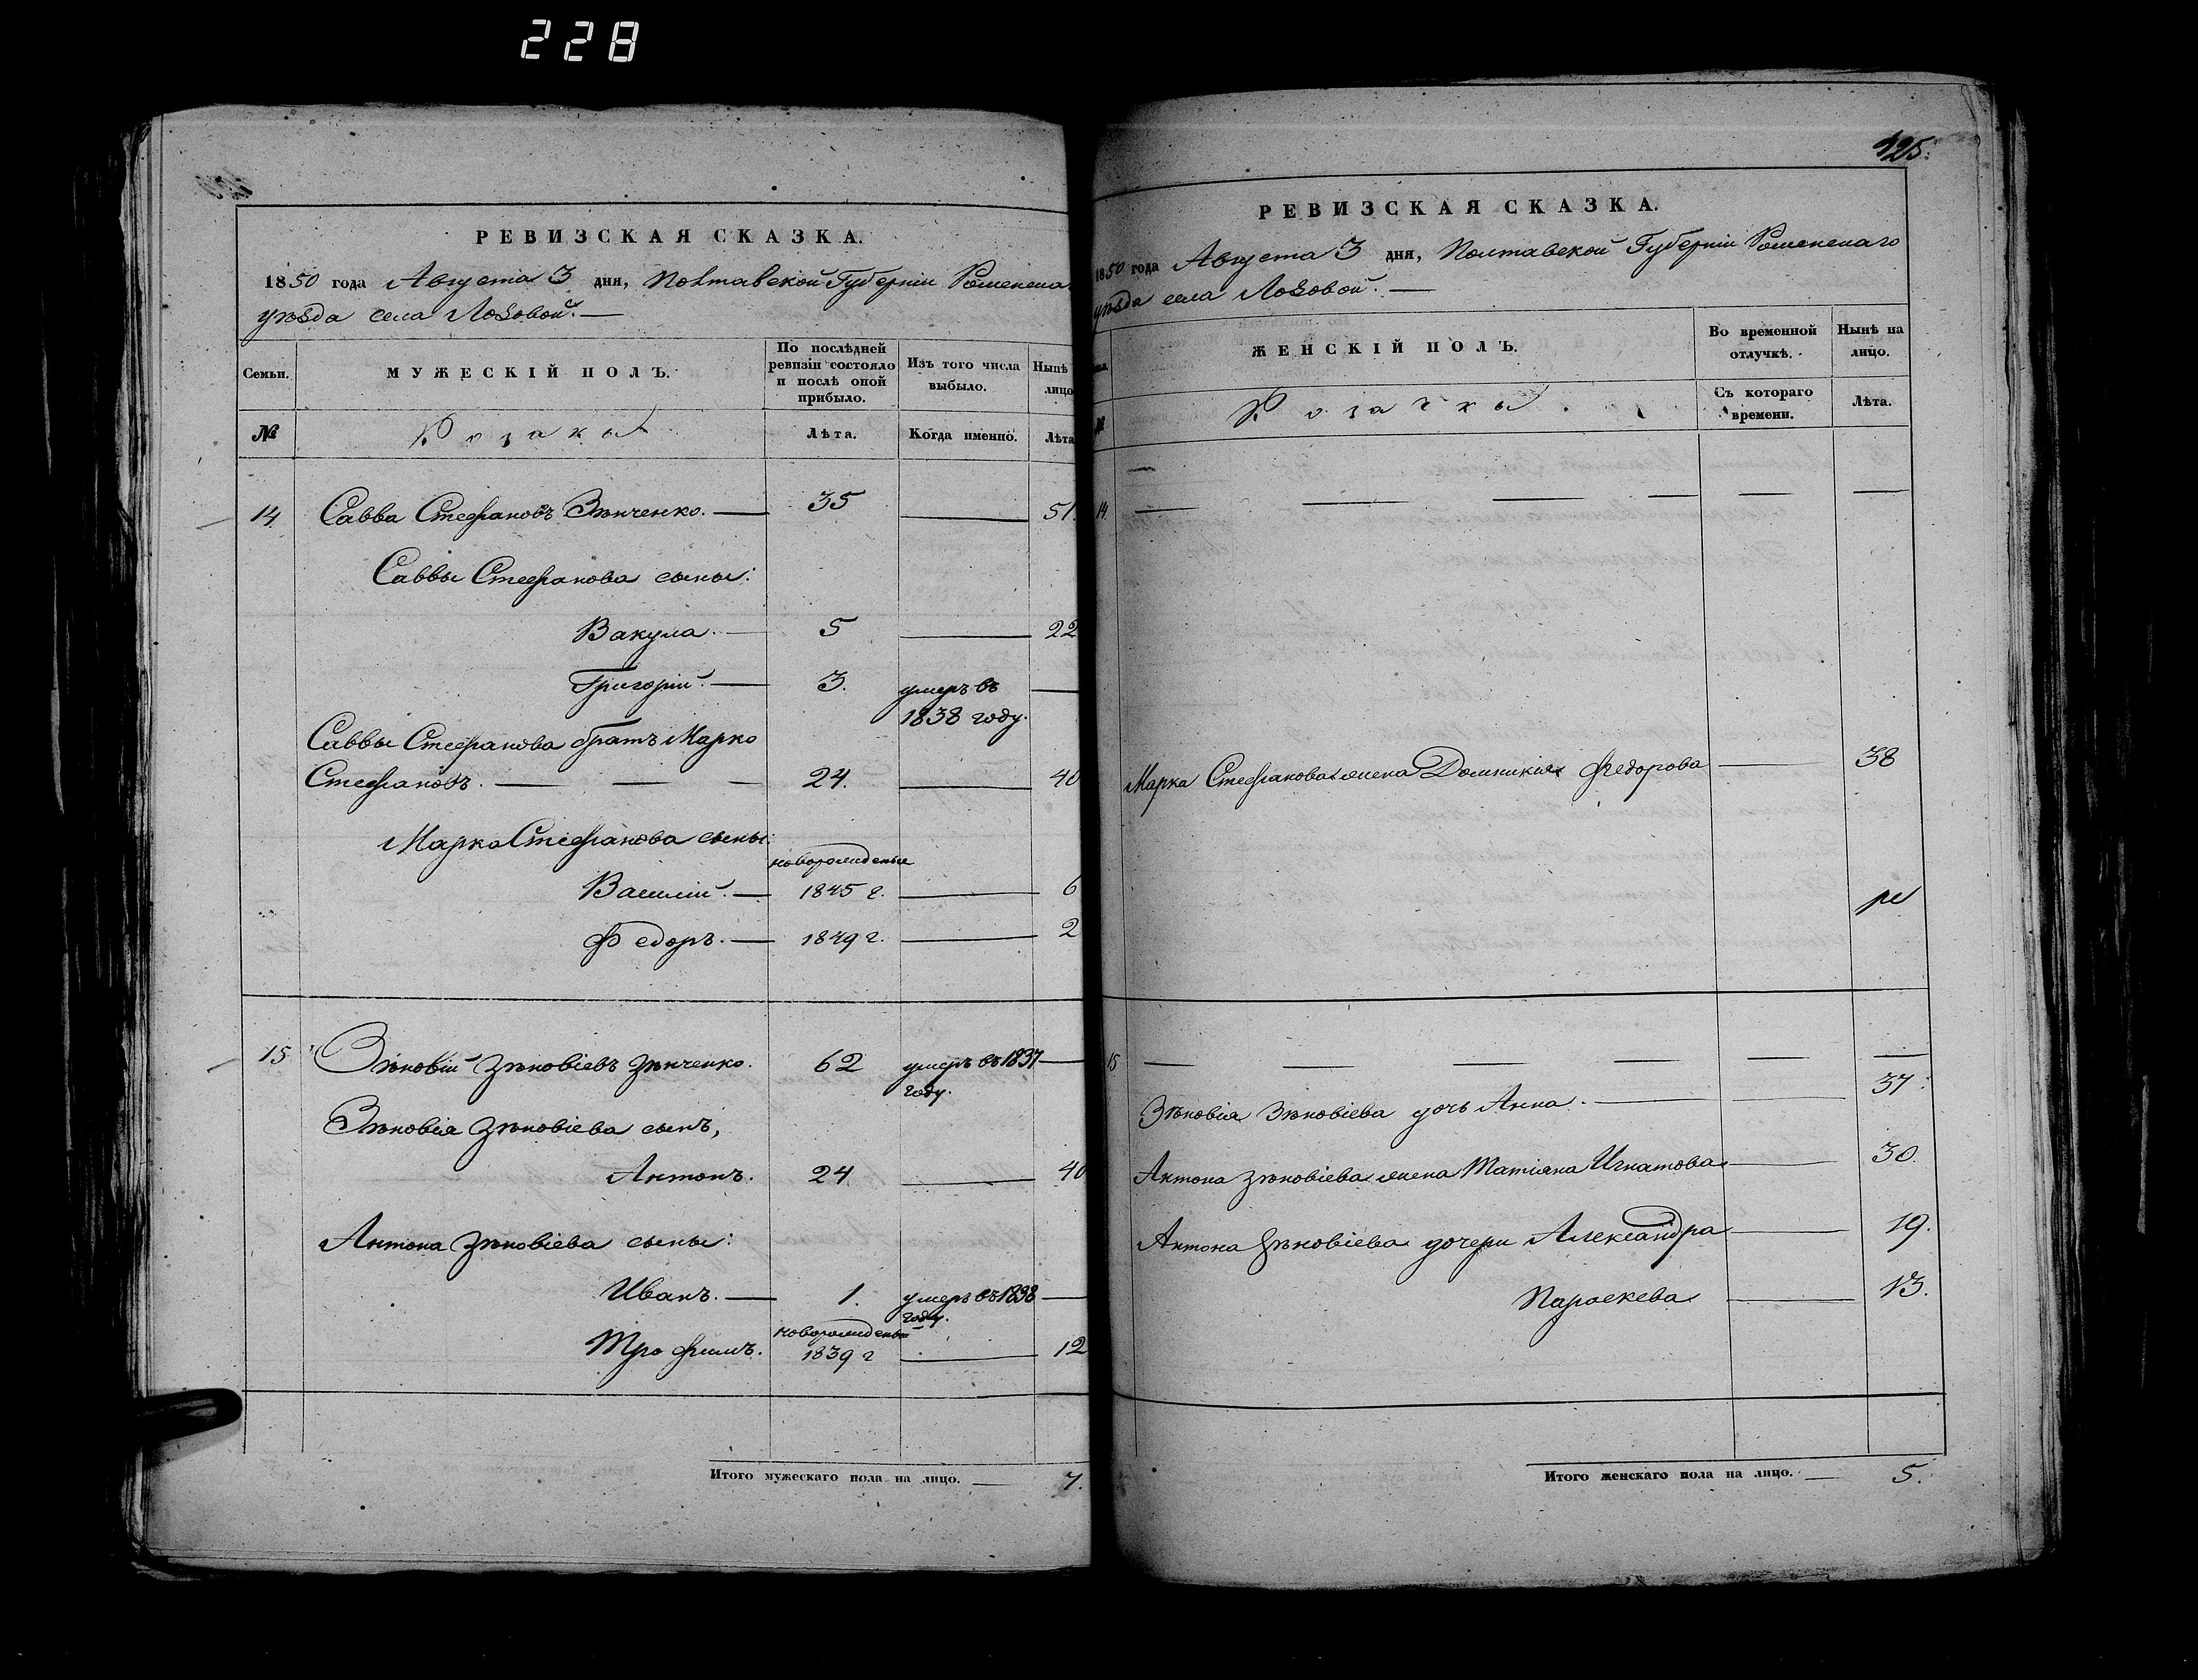 228
РЕВИЗСКАЯ СКАЗКА.
1850 года Августа 3 дня, Полтавской Губерніи Роменска
уѣзда села Лозовой. —
Семьи.
МУЖЕСКІЙ ПОЛЪ.
По послѣдней
ревизіи состояло
и послѣ оной
прибыло.
Изъ того числа
выбыло.
Нынѣ
лицо
№
Козаки
Лѣта.
Когда именно.
Лѣта
14 Савва Стефановъ Зѣнченко. — 35 — 51.
Саввы Стефанова сыны:
Вакула. — 5 — 22
Григорій. — 3. умеръ въ —
1838 году.
Саввы Стефанова братъ Марко
Стефановъ. — — — 24. — 40
Марка Стефанова сыны:
новорожденые
Василій. — 1845 г. — 6
Федоръ. — 1849 г. — 2
15 Зѣновій Зѣновіевъ Зѣнченко. 62 умеръ въ 1837 —
году.
Зѣновія Зѣновіева сынъ,
Антонъ. 24 — 40
Антона Зѣновіева сыны:
Иванъ. — 1. умеръ въ 1838 —
году.
новорожденый
Трофимъ. 1839 г — 12
Итого мужескаго пола на лицо. — 7.
125.
РЕВИЗСКАЯ СКАЗКА.
1850 года Августа 3 дня, Полтавской Губерніи Роменскаго
уѣзда села Лозовой. —
ЖЕНСКІЙ ПОЛЪ.
Во временной
отлучкѣ.
Нынѣ на
лицо.
№
Козачки.
Съ котораго
времени.
Лѣта.
14 — — — — — —
Марка Стефанова жена Домникия Федорова — 38
15 — — — — — —
Зѣновія Зѣновіева дочь Анна. — — 37.
Антона Зѣновіева жена Татіяна Игнатова — 30.
Антона Зѣновіева дочери Александра — 19.
Параскева — 13.
Итого женскаго пола на лицо. — 5.